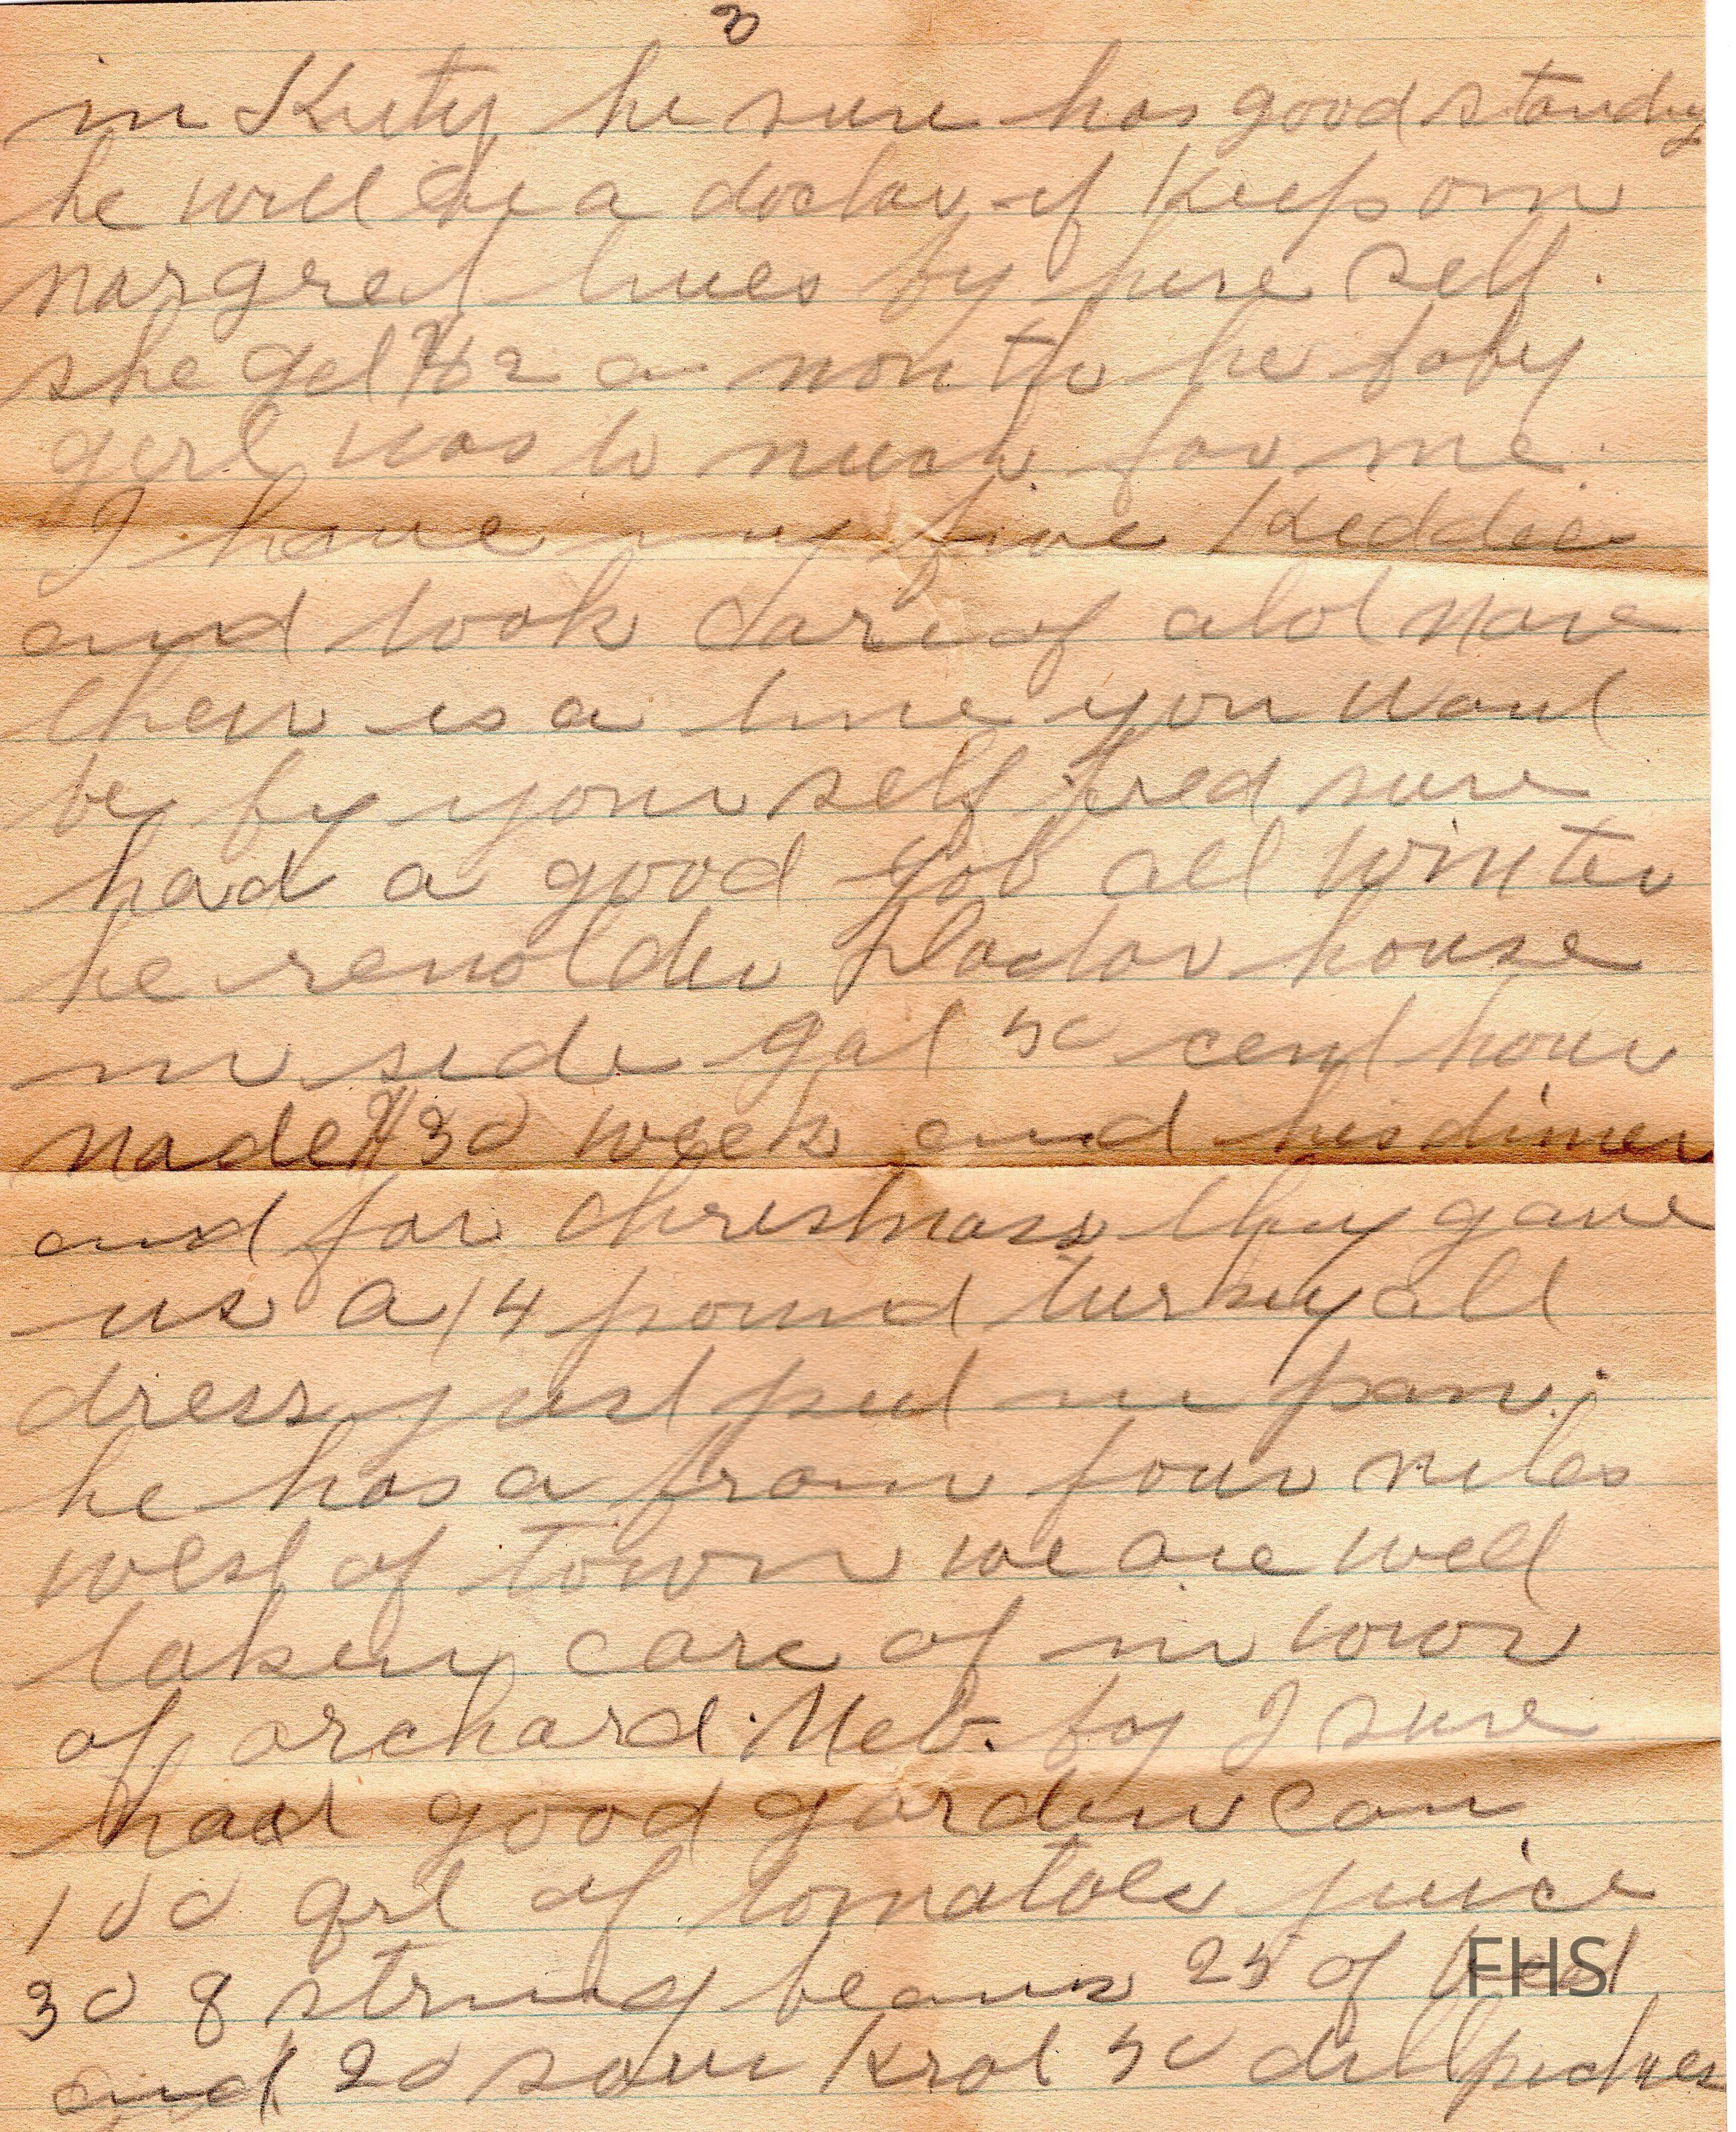 3
in Kuty he sure has good standing
he will be a doctor if keeps on
margret lives by hure self.
she get $62 a month he baby
girl was to much for me.
I have my five Kiddies
and took care of alot more
then is a time you want
be by your self fred sure
had a good Job all winter
he remolder Doctor house
in side gat 50 cent hour
made $30 week and his dinner
and for christmass they gave
us a 14 pound turkey all
dress just put in pan.
he has a from four miles
west of town we are well
taken care of in town
of orchard Neb. by I sure
had good garden Can
100 qrt of tomatoes juice
30 q string beans 25 of beat
and 20 sour krat 50 dill pickles
FHS